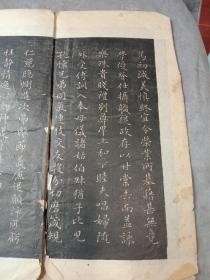 篤初誠美慎終宜令榮業所基藉甚無竟
學優登仕攝職從政存以甘棠去而益詠
樂殊貴賤禮別尊卑上和下睦夫唱婦隨
外受傅訓入奉母儀諸姑伯叔猶子比兒
孔懷兄弟同氣連枝交友投分切磨箴規
仁慈隱惻造次弗離節義廉退顛沛匪虧